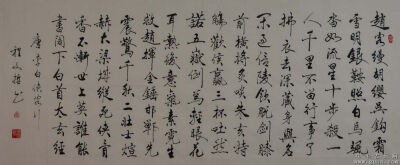 趙客縵胡纓吳鉤霜
雪明銀鞍照白馬颯
沓如流星十步殺一
人千里不留行事了
拂衣去深藏身與名
閑過信陵飲脫劍膝
前橫將炙啖朱亥持
觴勸侯嬴三杯吐然
諾五嶽倒為輕眼花
耳熱後意氣素霓生
救趙揮金錘邯鄲先
震驚千秋二壯士烜
赫大梁城縱死俠骨
香不慚世上英誰能
書閣下白首太玄經
唐李白俠客行